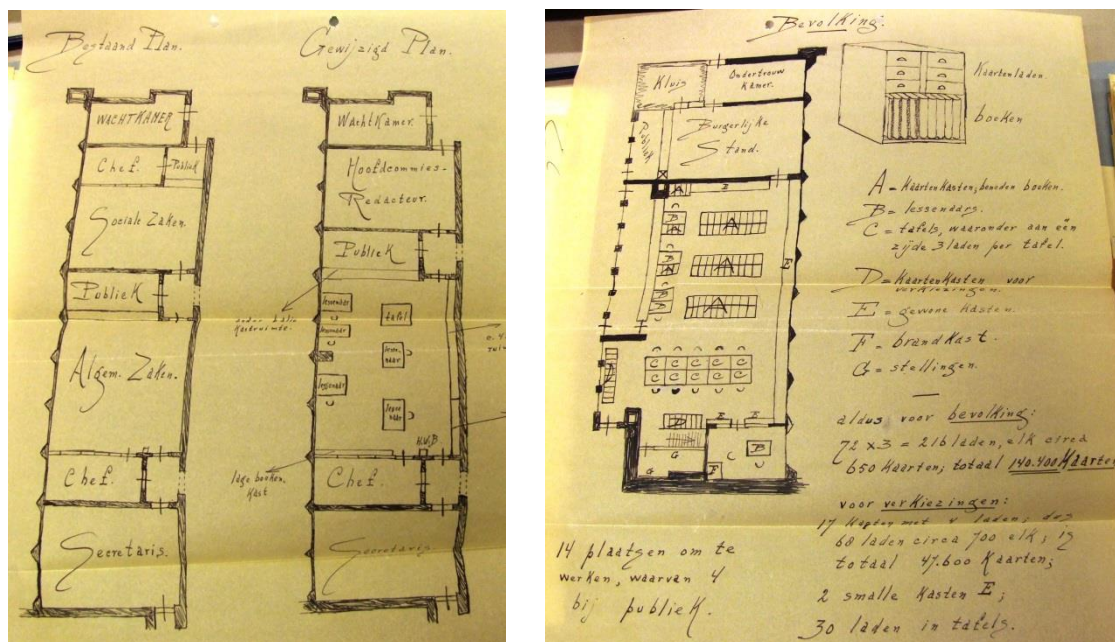 Bestaand Plan.
WACHTKAMER
Chef.
Publiek
Sociale Zaken.
Publiek
Algem. Zaken.
Chef.
Secretaris.
Gewijzigd Plan.
Wachtkamer.
Hoofdcommies-
Redacteur.
Publiek
onder balie
Kastruimte.
lessenaar
tafel
lessenaar
lessen
naar
lessenaar
lesse
naar
lage boeken.
Kast
Chef.
Secretaris
Bevolking.
Kluis
Ondertrouw
Kamer.
Publiek
Burgerlijke
Stand.
E
A
B
A
E
B
A
B
A
C C C C C
C C C C C
D
E
E
B
G
G
F
Kaartenladen.
boeken
A = Kaartenkasten, beneden boeken.
B = lessenaars.
C = tafels, waaronder aan één
zijde 3 laden per tafel.
D = Kaartenkasten voor
verkiezingen.
E = gewone Kasten.
F = brandkast.
G = stellingen.
aldus voor bevolking:
72 x 3 = 216 laden, elk circa
650 Kaarten; totaal 140.400 Kaarten
voor verkiezingen:
17 Kasten met 4 laden; dus
68 laden circa 700 elk; is
totaal 47.600 Kaarten;
2 smalle Kasten E;
30 laden in tafels.
14 plaatsen om te
werken, waarvan 4
bij publiek.